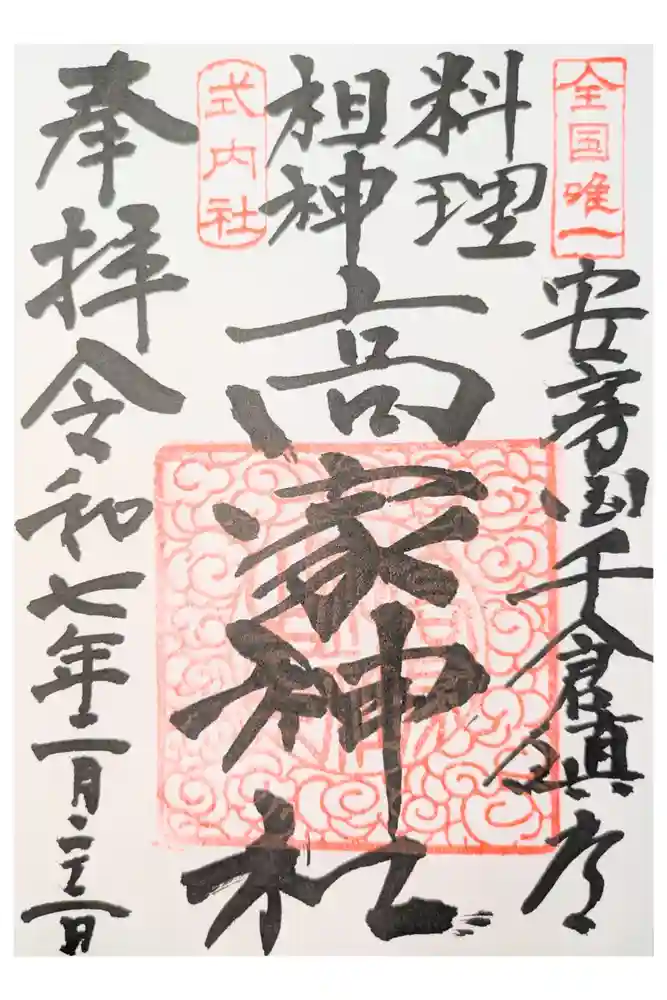 全国唯一
安房国千倉鎮座
料理
祖神
高家神社
式内社
奉拝
令和七年二月二十三日